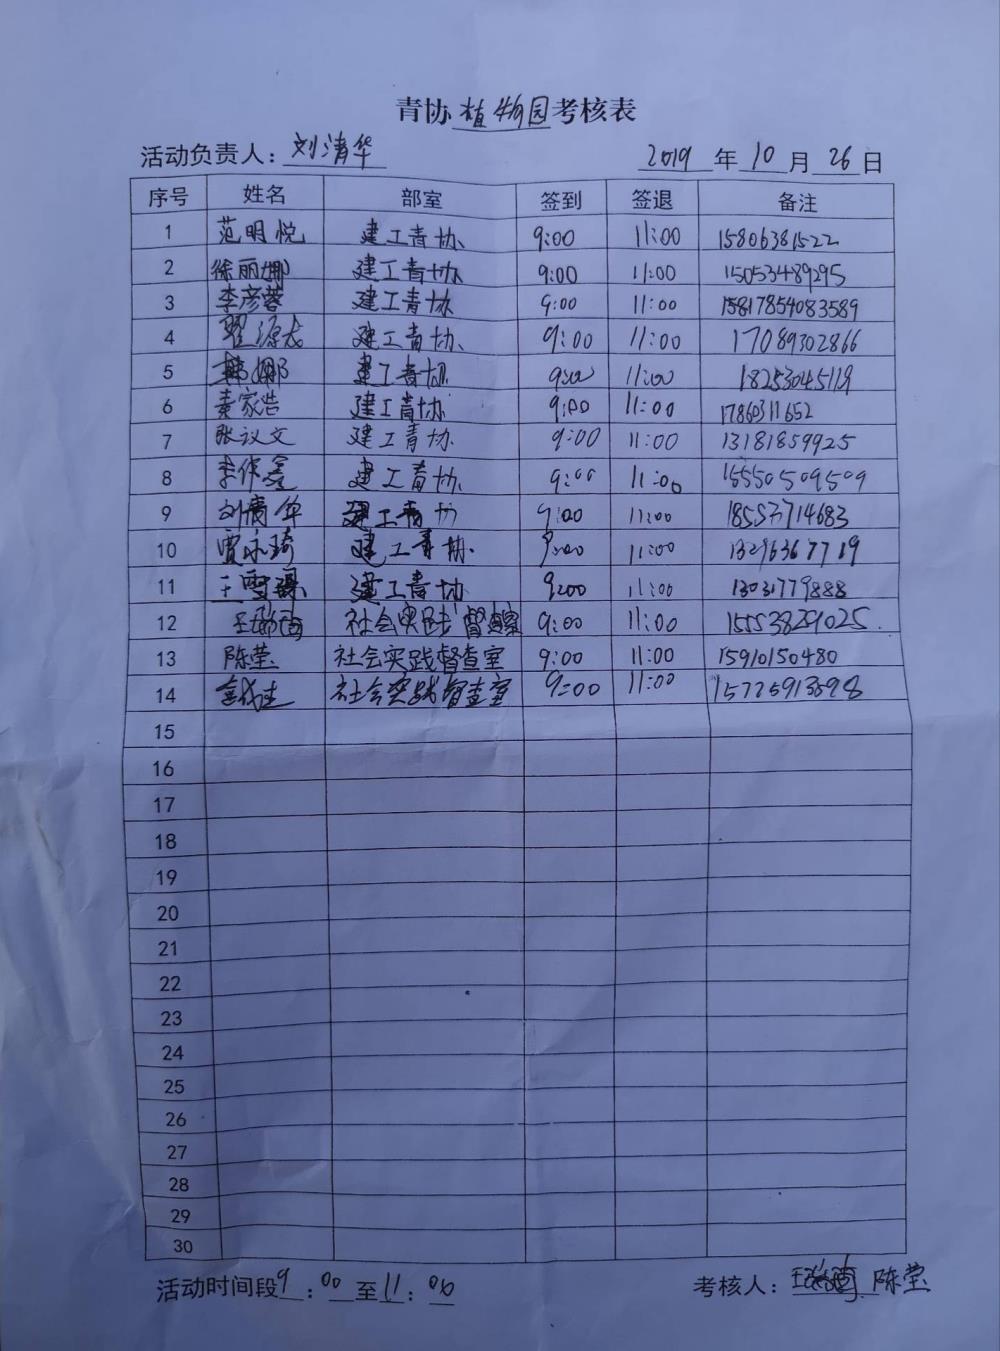 青协 植物园 考核表
活动负责人： 刘清华 2019 年 10 月 26 日
序号 姓名 部室 签到 签退 备注
1 范明悦 建工青协 9:00 11:00 15806381522
2 徐丽娜 建工青协 9:00 11:00 15053489295
3 李彦蓉 建工青协 9:00 11:00 15817854083589
4 翟源长 建工青协 9:00 11:00 17089302866
5 韩娜 建工青协 9:00 11:00 18253045119
6 家浩 建工青协 9:00 11:00 17860311652
7 张议文 建工青协 9:00 11:00 13181859925
8 李作鑫 建工青协 9:00 11:00 15550509509
9 刘清华 建工青协 9:00 11:00 18553714683
10 贾永琦 建工青协 9:00 11:00 13296367719
11 王雪 建工青协 9:00 11:00 13031779888
12 社会实践督察 9:00 11:00 15553829025
13 陈莹 社会实践督查室 9:00 11:00 15910150480
14 社会实践督查室 9:00 11:00
15
16
17
18
19
20
21
22
23
24
25
26
27
28
29
30
活动时间段 9 : 00 至 11 : 00 考核人： 陈莹